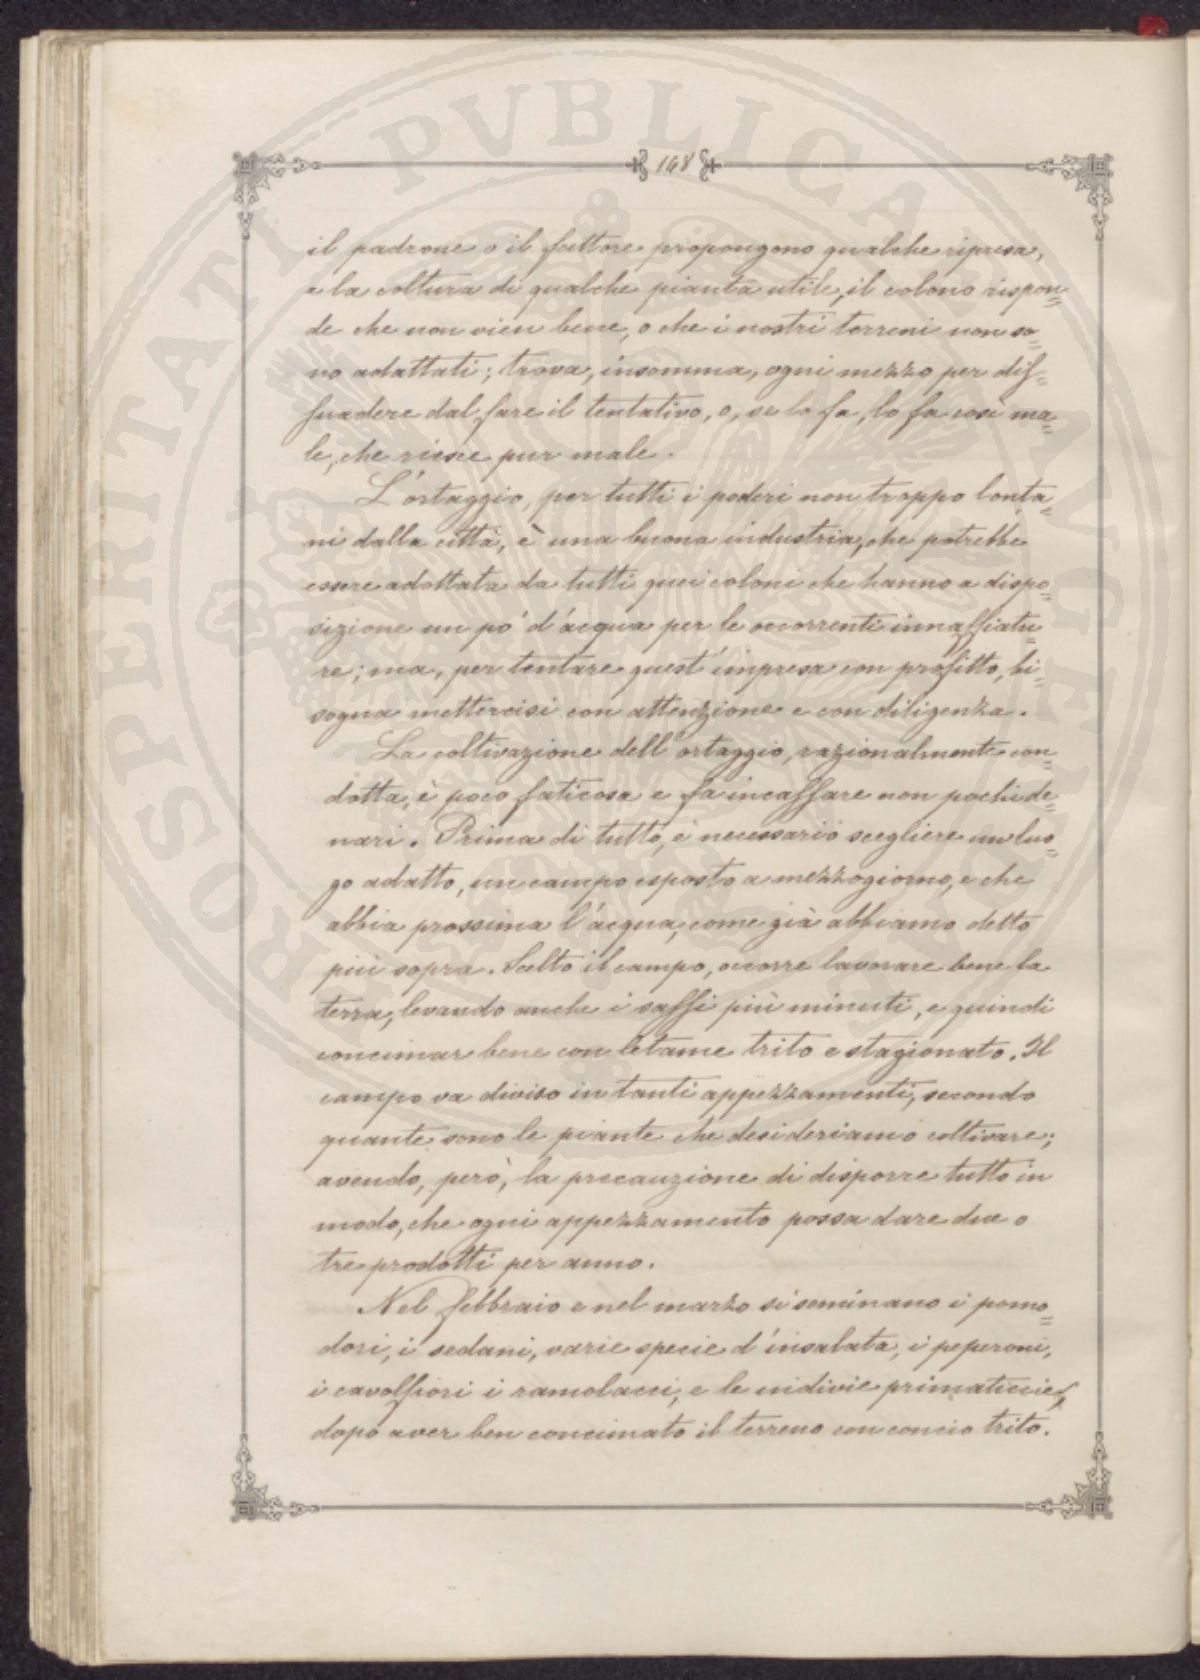 168
il padrone o il fattore propongono qualche ripresa,
e la coltura di qualche pianta utile, il colono rispon=
de che non vien bene, o che i nostri terreni non so=
no adattati; trova, insomma, ogni mezzo per dis=
suadere dal fare il tentativo, o, se lo fa, lo fa così ma=
le, che riesce pur male.
L'ortaggio, per tutti i poderi non troppo lonta=
ni dalla città, è una buona industria, che potrebbe
essere adottata da tutti quei coloni che hanno a dispo=
sizione un po' d'acqua per le occorrenti innaffiatu=
re; ma, per tentare quest'impresa con profitto, bi=
sogna mettercisi con attenzione e con diligenza.
La coltivazione dell'ortaggio, razionalmente con=
dotta, è poco faticosa e fa incassare non pochi de=
nari. Prima di tutto, è necessario scegliere un luo=
go adatto, un campo esposto a mezzogiorno, e che
abbia prossima l'acqua, come già abbiamo detto
più sopra. Scelto il campo, occorre lavorare bene la
terra, levando anche i sassi più minuti, e quindi
concimar bene con letame trito e stagionato. Il
campo va diviso in tanti appezzamenti, secondo
quante sono le piante che desideriamo coltivare;
avendo, però, la precauzione di disporre tutto in
modo, che ogni appezzamento possa dare due o
tre prodotti per anno.
Nel febbraio e nel marzo si seminano i pomo=
dori, i sedani, varie specie d'insalata, i peperoni,
i cavolfiori i ramolacci, e le indivie primaticcie,
dopo aver ben concimato il terreno con concio trito.
PROSPERITATI PVBLICAE AVGENDAE